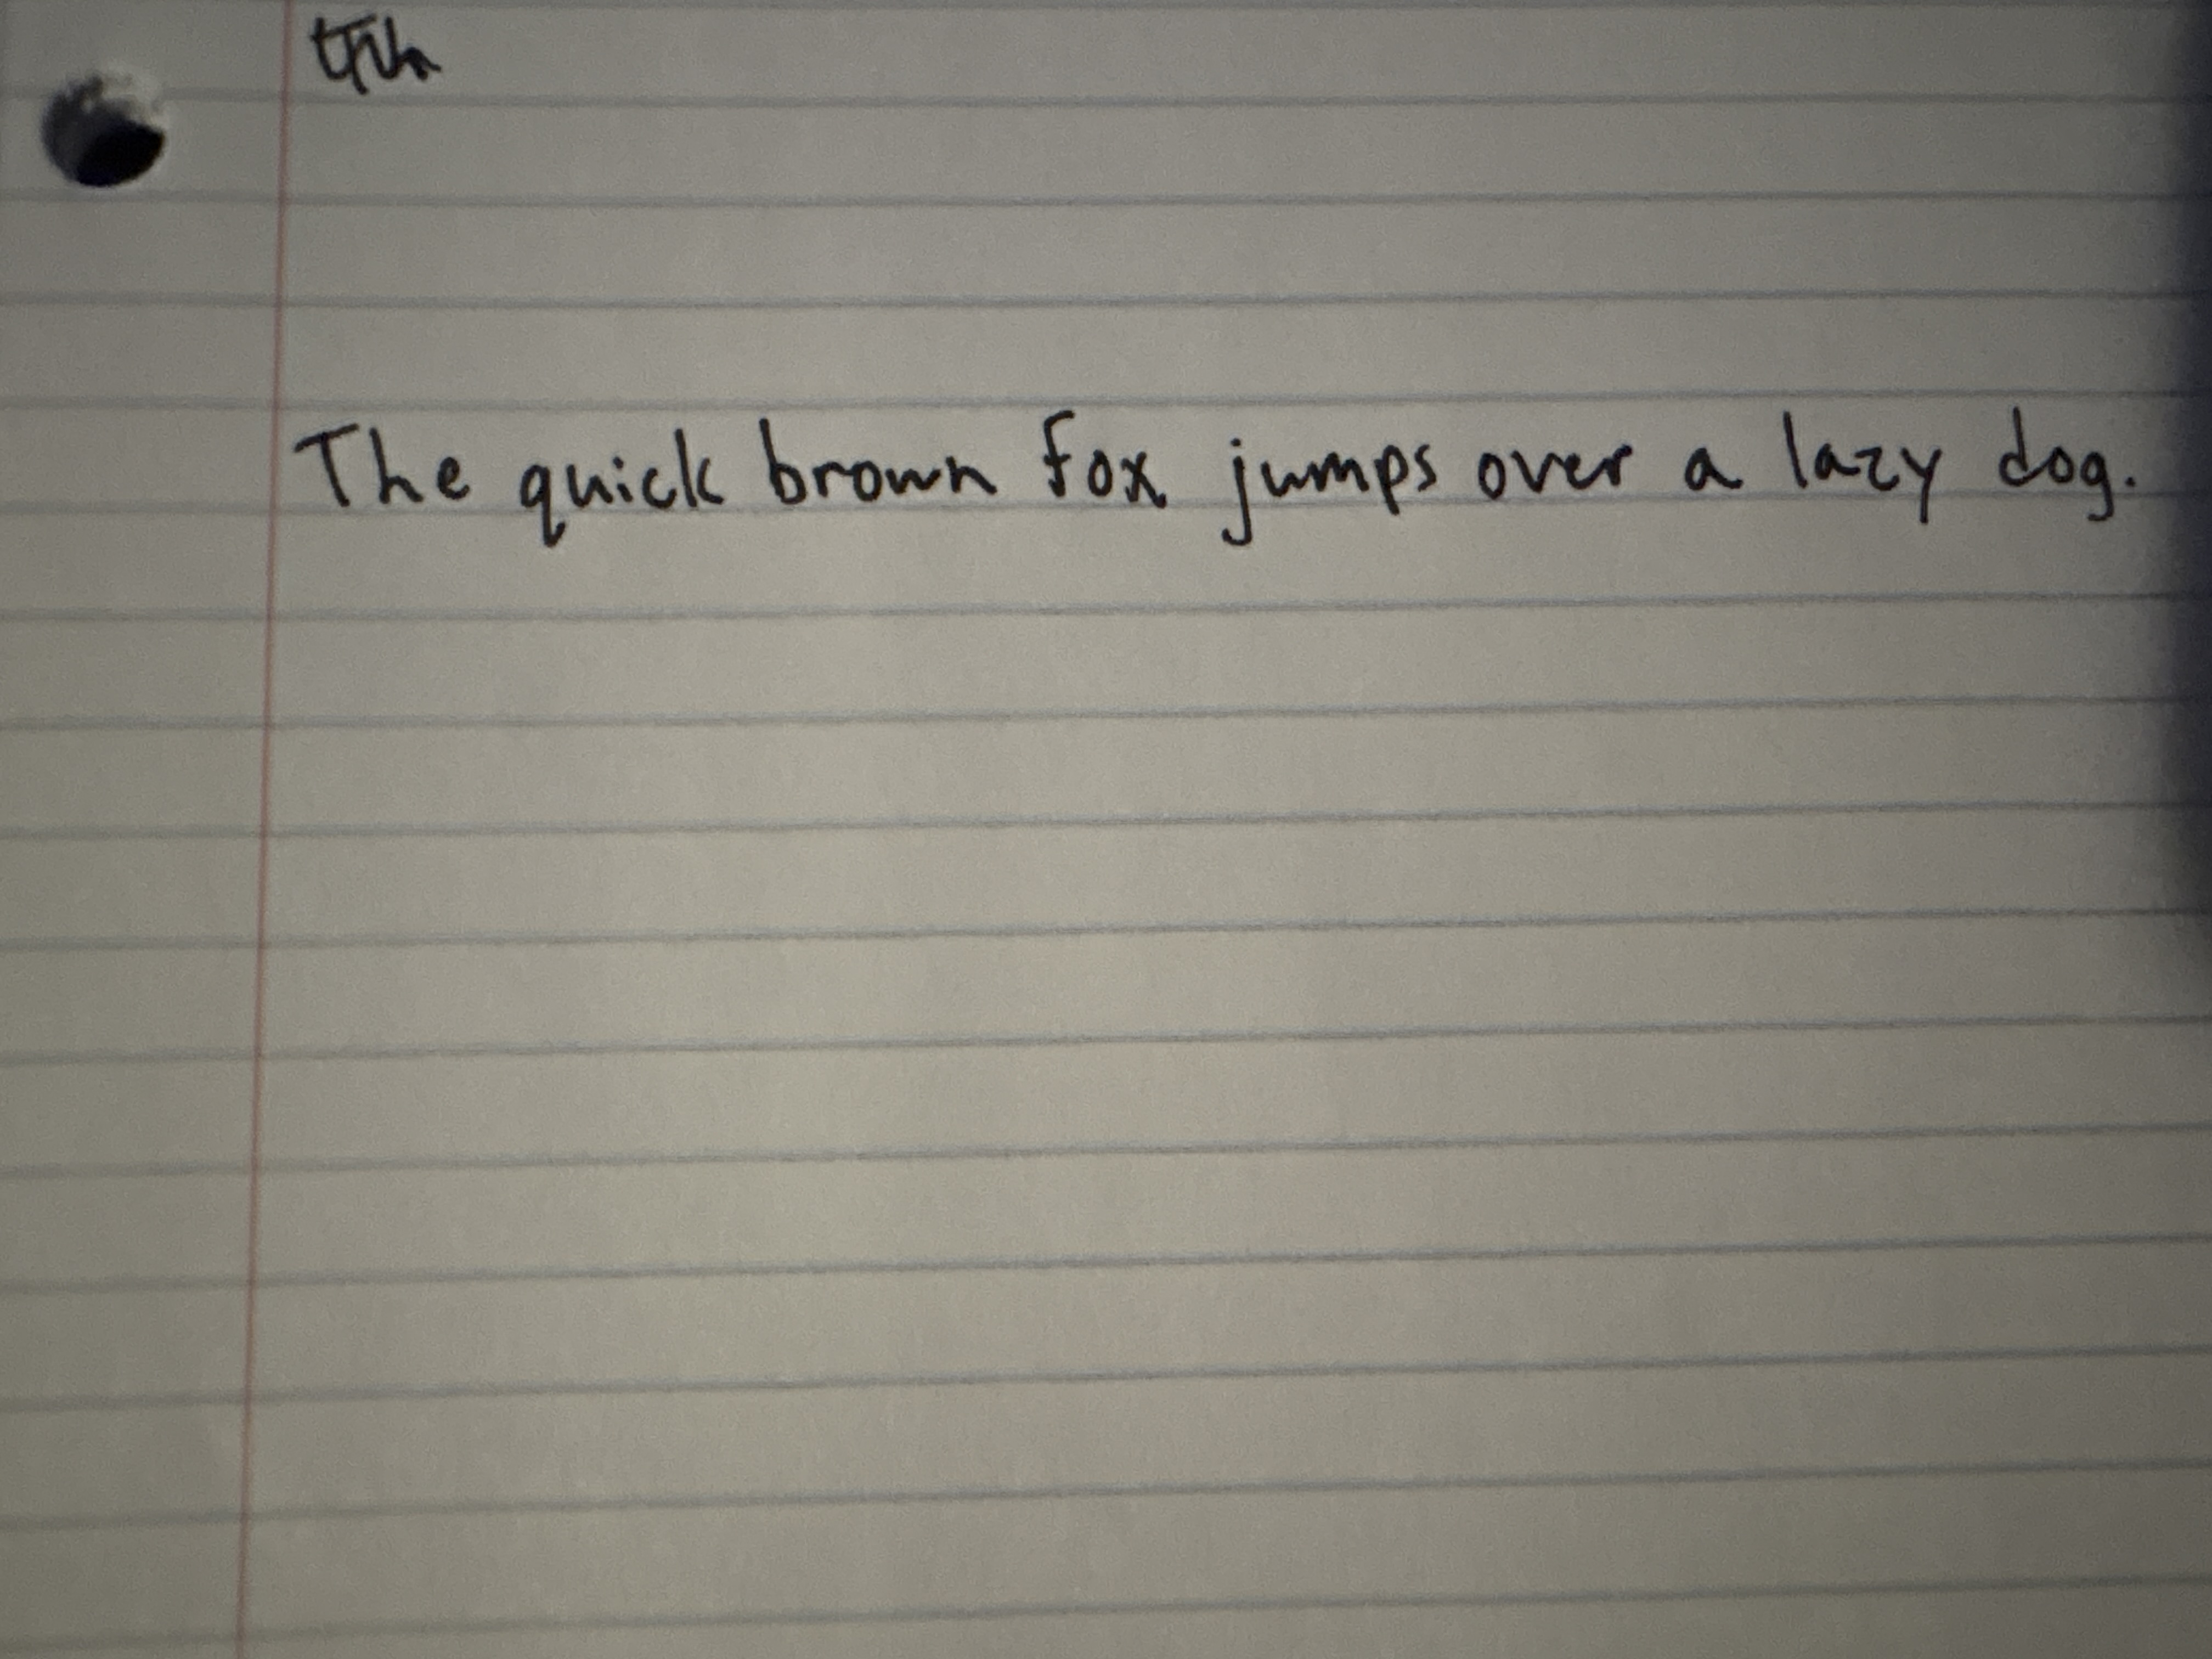 The quick brown fox jumps over a lazy dog.